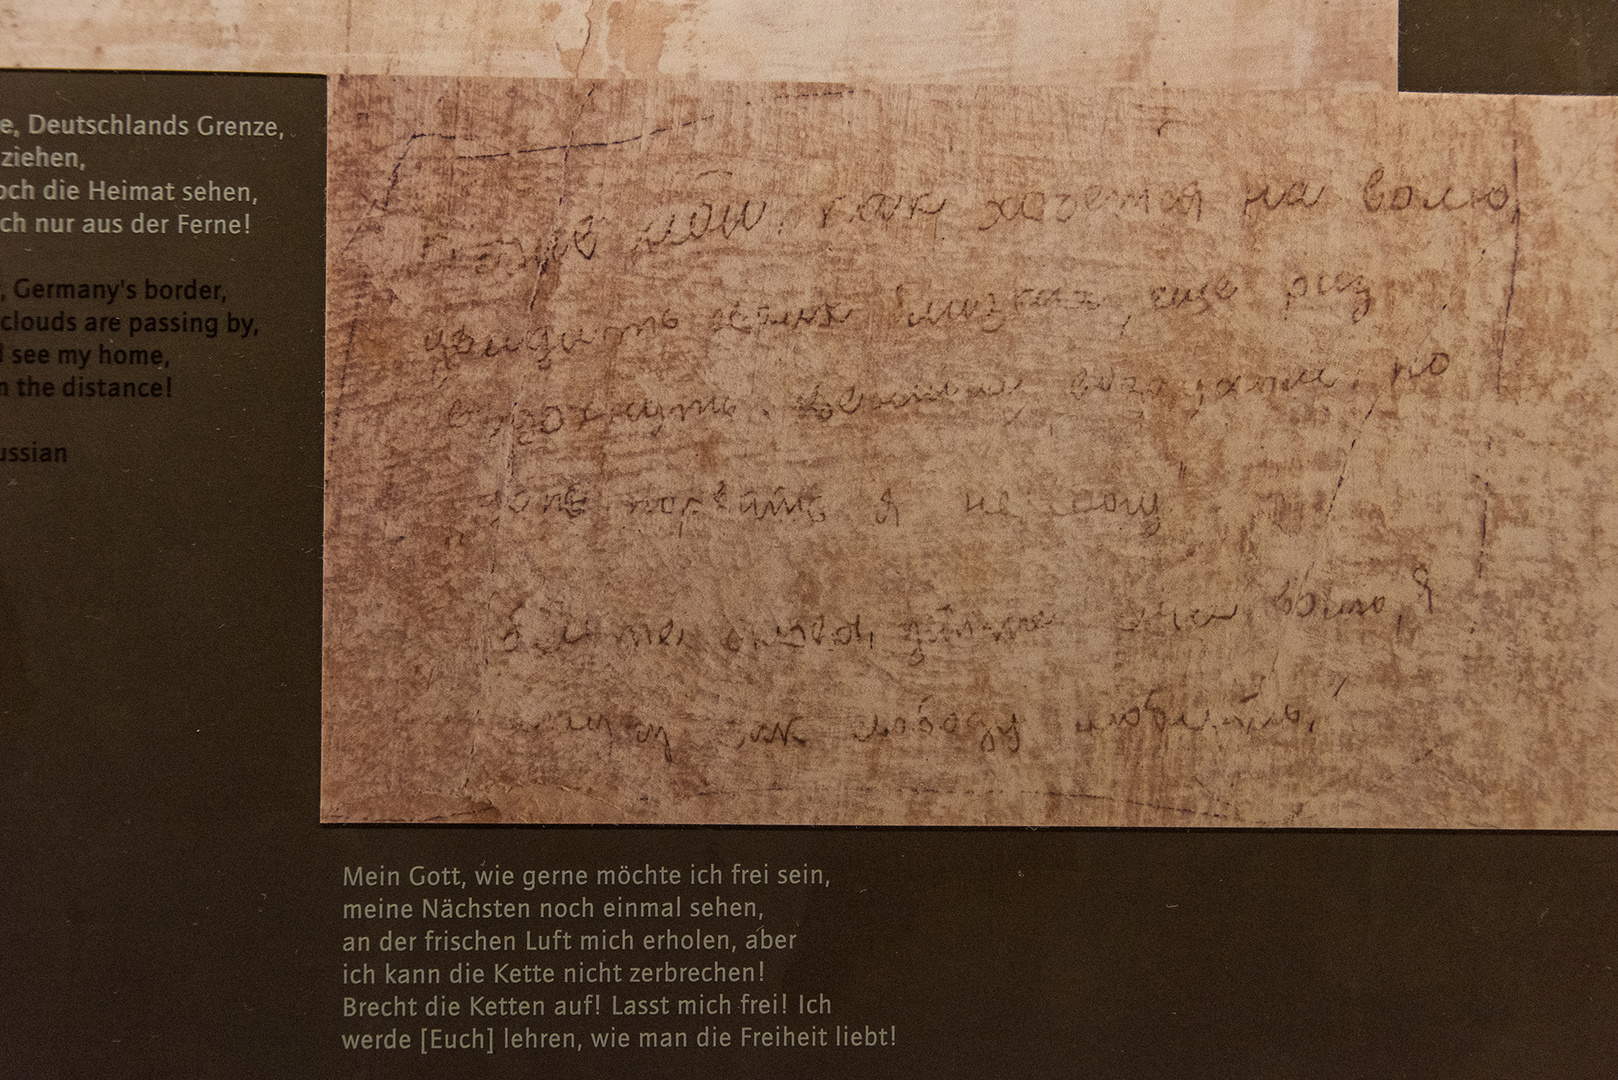 e, Deutschlands Grenze,
ziehen,
och die Heimat sehen,
ch nur aus der Ferne!
, Germany's border,
clouds are passing by,
see my home,
the distance!
ussian
мой, как хочется на волю,
увидить близких, еще раз
воздухом, но
цепь порвать я не могу
цепи, дайте мне волю, я
научу как свободу любить,
Mein Gott, wie gerne möchte ich frei sein,
meine Nächsten noch einmal sehen,
an der frischen Luft mich erholen, aber
ich kann die Kette nicht zerbrechen!
Brecht die Ketten auf! Lasst mich frei! Ich
werde [Euch] lehren, wie man die Freiheit liebt!